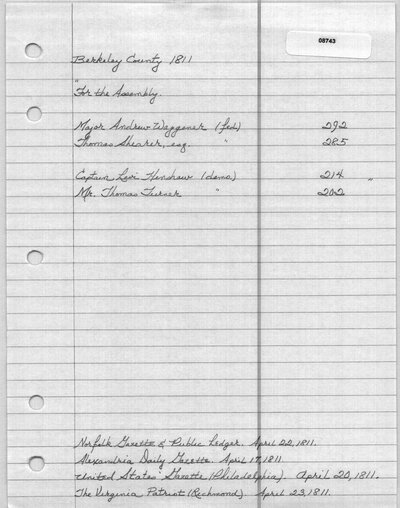 08743
Berkeley County 1811
"
For the Assembly.
Major Andrew Waggener (fed) 292
Thomas Shearer, esq. " 285
Captain Levi Henshaw (demo) 214 "
Mr. Thomas Turner " 202
Norfolk Gazette & Public Ledger. April 22, 1811.
Alexandria Daily Gazette. April 17, 1811.
United States Gazette (Philadelphia). April 20, 1811.
The Virginia Patriot (Richmond) April 23, 1811.